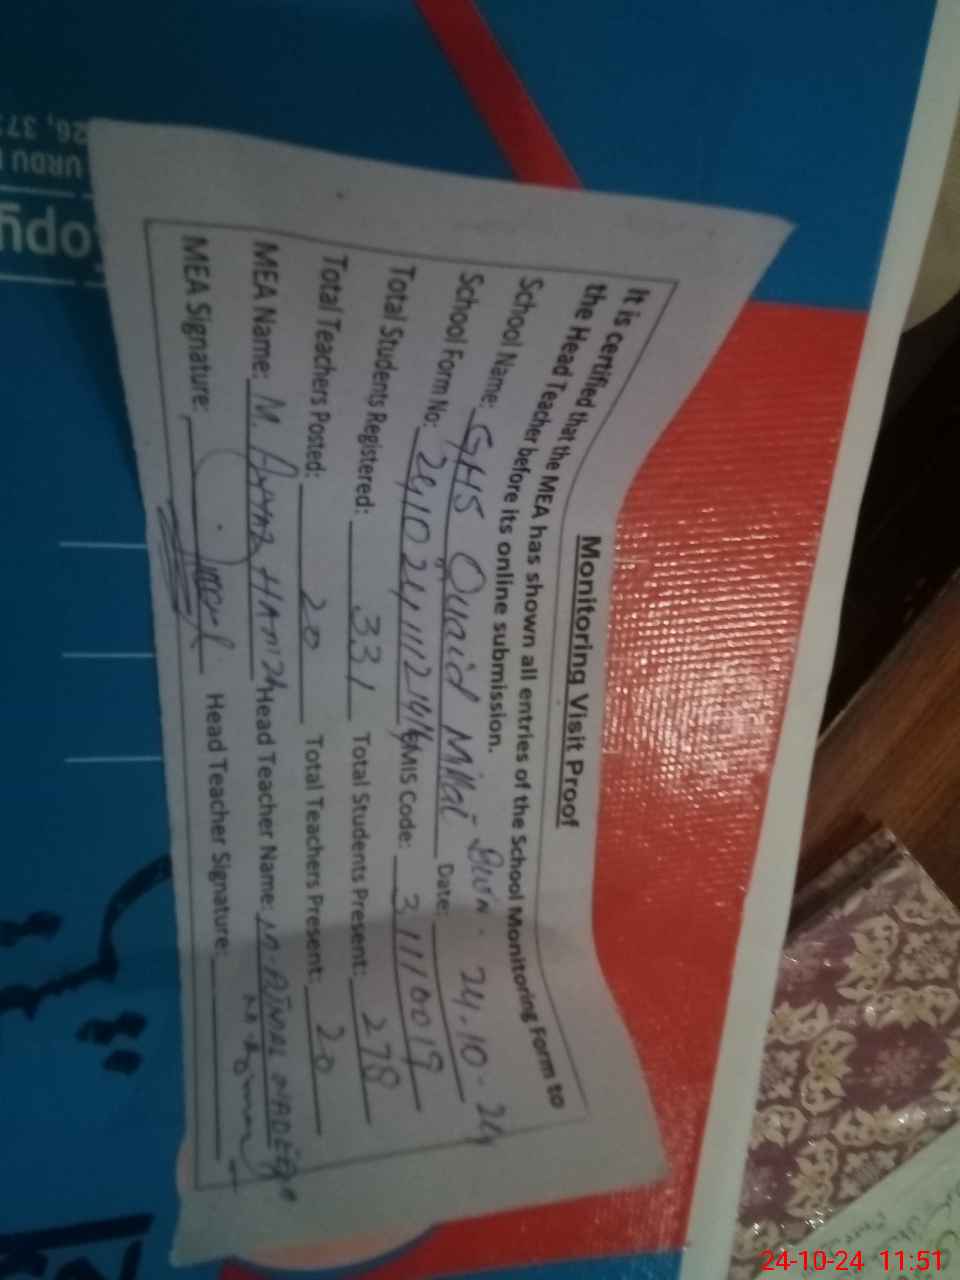 Monitoring Visit Proof
It is certified that the MEA has shown all entries of the School Monitoring Form to
the Head Teacher before its online submission.
School Name: GHS Quaid Millat Date: 24-10-24
School Form No: EMIS Code: 31110019
Total Students Registered: 331 Total Students Present: 278
Total Teachers Posted: 20 Total Teachers Present: 20
MEA Name: M. Head Teacher Name: M.
MEA Signature: Head Teacher Signature:
URDU
opy
24-10-24 11:51